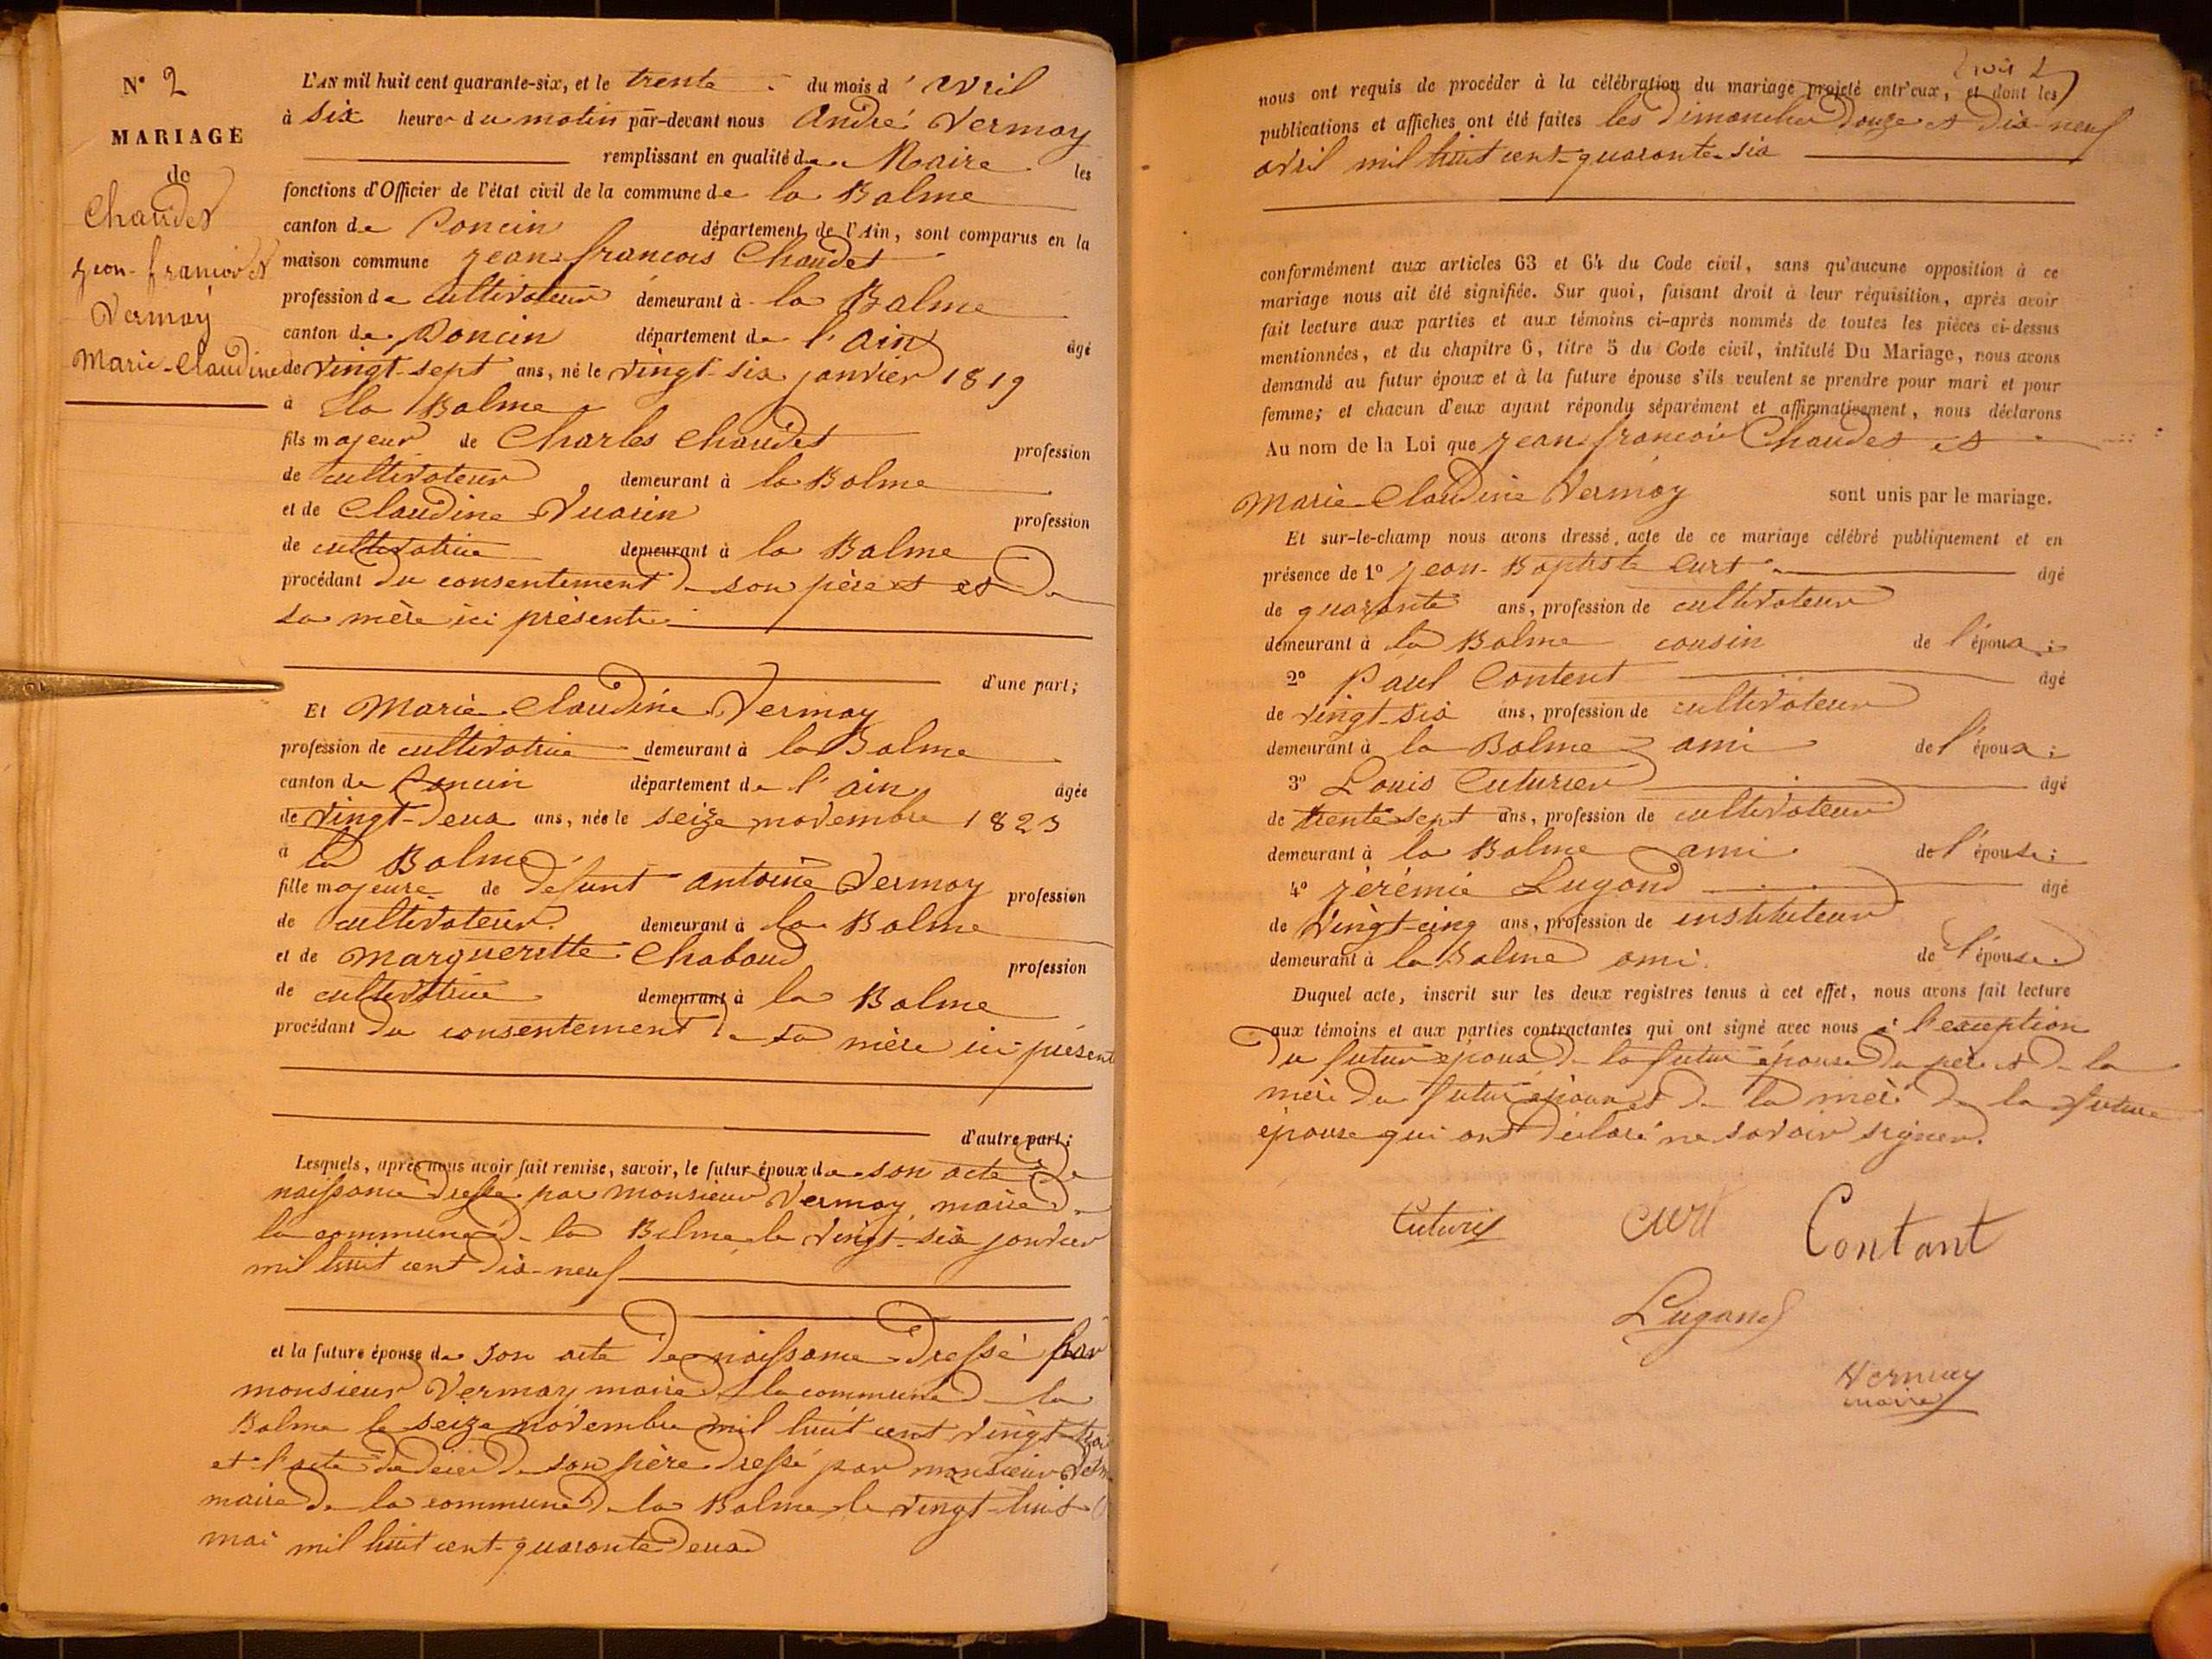 N° 2
MARIAGE
de
Chaudet
jean-francois et
Vermay
Marie-Claudine
L'AN mil huit cent quarante-six, et le trente du mois d'avril
à six heures du matin par-devant nous André Vermay
remplissant en qualité de Maire les
fonctions d'Officier de l'état civil de la commune de la Balme
canton de Poncin département de l'Ain, sont comparus en la
maison commune jean francois Chaudet
profession de cultivateur demeurant à la Balme
canton de Poncin département de l'ain âgé
de vingt-sept ans, né le vingt-six janvier 1819
à la Balme
fils majeur de Charles Chaudet profession
de cultivateur demeurant à la Balme
et de Claudine Vuarin profession
de cultivatrice demeurant à la Balme
procédant du consentement de son père et et de
sa mère ici présents
d'une part;
Et Marie Claudine Vermay
profession de cultivatrice demeurant à la Balme
canton de Poncin département de l'ain âgée
de vingt-deux ans, née le seize novembre 1823
à la Balme
fille majeure de defunt antoine Vermay profession
de cultivateur demeurant à la Balme
et de margueritte Chaboud profession
de cultivatrice demeurant à la Balme
procédant du consentement de sa mère ici présent
d'autre part;
Lesquels, après nous avoir fait remise, savoir, le futur époux de son acte de
naissance dressé par monsieur Vermay, maire de
la commune de la Balme le vingt-six janvier
mil huit cent dix-neuf
et la future épouse de son acte de naissance dressé par
monsieur Vermay maire de la commune de la
Balme le seize novembre mil huit cent vingt-troi
et l'acte de décès de son père dressé par monsieur
maire de la commune de la Balme le vingt-huit
mai mil huit cent-quarante deux
nous ont requis de procéder à la célébration du mariage projeté entr'eux, et dont les
publications et affiches ont été faites les dimanches douze et dix-neuf
avril mil huit cent-quarante-six
conformément aux articles 63 et 64 du Code civil, sans qu'aucune opposition à ce
mariage nous ait été signifiée. Sur quoi, faisant droit à leur réquisition, après avoir
fait lecture aux parties et aux témoins ci-après nommés de toutes les pièces ci-dessus
mentionnées, et du chapitre 6, titre 5 du Code civil, intitulé Du Mariage, nous avons
demandé au futur époux et à la future épouse s'ils veulent se prendre pour mari et pour
femme; et chacun d'eux ayant répondu séparément et affirmativement, nous déclarons
Au nom de la Loi que jean francois Chaudet et
Marie Claudine Vermay sont unis par le mariage.
Et sur-le-champ nous avons dressé acte de ce mariage célébré publiquement et en
présence de 1° jean-Baptiste Curt âgé
de quarante ans, profession de cultivateur
demeurant à la Balme cousin de l'époux;
2° Paul Content âgé
de vingt-six ans, profession de cultivateur
demeurant à la Balme ami de l'époux;
3° Louis Cuturier âgé
de trente sept ans, profession de cultivateur
demeurant à la Balme ami de l'épouse;
4° jérémie Lugand âgé
de vingt-cinq ans, profession de instituteur
demeurant à la Balme ami de l'épouse
Duquel acte, inscrit sur les deux registres tenus à cet effet, nous avons fait lecture
aux témoins et aux parties contractantes qui ont signé avec nous à l'exception
du futur époux de la futur épouse du père et de la
mère du futur époux et de la mère de la future
épouse qui ont déclaré ne savoir signer.
Curt
Contant
Lugand
Vermay
maire